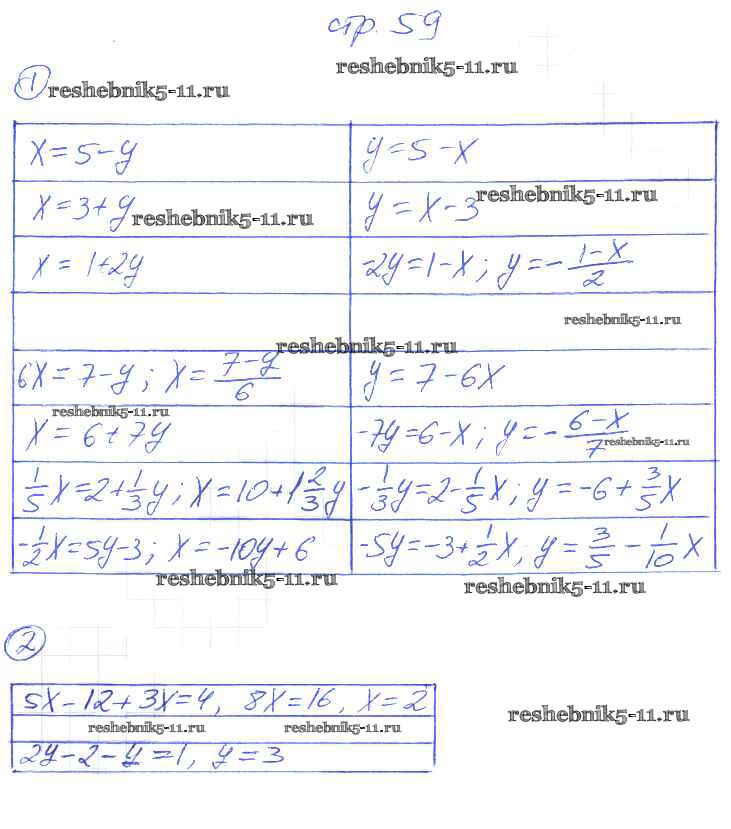 стр. 59
reshebnik5-11.ru
1 reshebnik5-11.ru
x = 5 - y    y = 5 - x
reshebnik5-11.ru
x = 3 + y    y = x - 3
reshebnik5-11.ru
x = 1 + 2y    -2y = 1 - x ; y = - \frac{1-x}{2}
reshebnik5-11.ru
reshebnik5-11.ru
6x = 7 - y ; x = \frac{7-y}{6}    y = 7 - 6x
reshebnik5-11.ru
x = 6 + 7y    -7y = 6 - x ; y = - \frac{6-x}{7}
reshebnik5-11.ru
\frac{1}{5}x = 2 + \frac{1}{3}y ; x = 10 + 1\frac{2}{3}y    -\frac{1}{3}y = 2 - \frac{1}{5}x ; y = -6 + \frac{3}{5}x
-\frac{1}{2}x = 5y - 3 ; x = -10y + 6    -5y = -3 + \frac{1}{2}x, y = \frac{3}{5} - \frac{1}{10}x
reshebnik5-11.ru    reshebnik5-11.ru
2
5x - 12 + 3x = 4, 8x = 16, x = 2
reshebnik5-11.ru    reshebnik5-11.ru    reshebnik5-11.ru
2y - 2 - y = 1, y = 3